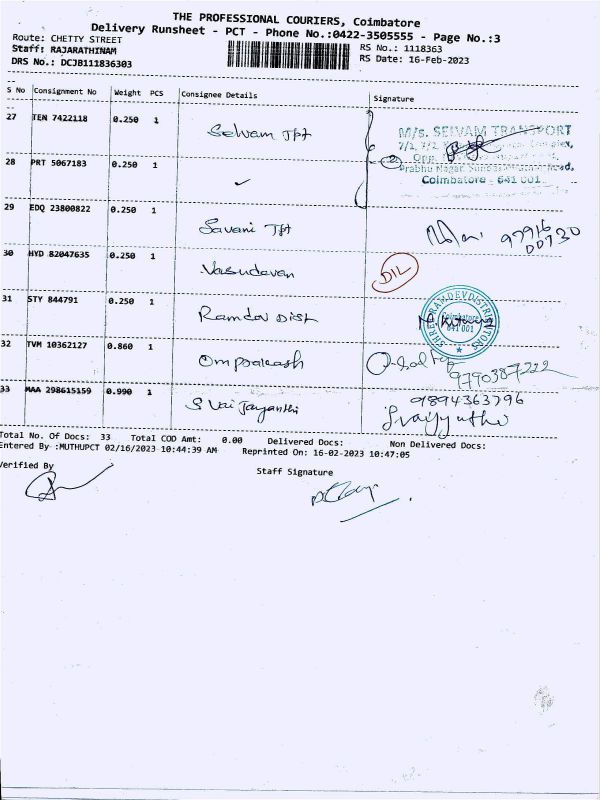 THE PROFESSIONAL COURIERS, Coimbatore
Delivery Runsheet - PCT - Phone No.:0422-3505555 - Page No.:3
Route: CHETTY STREET
Staff: RAJARATHINAM
DRS No.: DCJB111836303
RS No.: 1118363
RS Date: 16-Feb-2023
S No Consignment No Weight PCS Consignee Details Signature
27 TEN 7422118 0.250 1 Selvam Tpt
M/s. SELVAM TRANSPORT
7/1, 7/2 Complex,
Opp.
Prabhu Nagar, Road,
Coimbatore - 641 001
28 PRT 5067183 0.250 1 ✓ 2
29 EDQ 23800822 0.250 1 Savani Tpt 97916
00730
30 HYD 82047635 0.250 1 Vasudavan DIL
31 STY 844791 0.250 1 Ramdev Dist
SHREE RAMDEV DISTRIBUTORS
Coimbatore
641 001
32 TVM 10362127 0.860 1 Omprakash
9790387222
33 MAA 298615159 0.990 1 S Vaijayanthi 9894363796
Total No. Of Docs: 33 Total COD Amt: 0.00 Delivered Docs: Non Delivered Docs:
Entered By :MUTHUPCT 02/16/2023 10:44:39 AM Reprinted On: 16-02-2023 10:47:05
Verified By Staff Signature